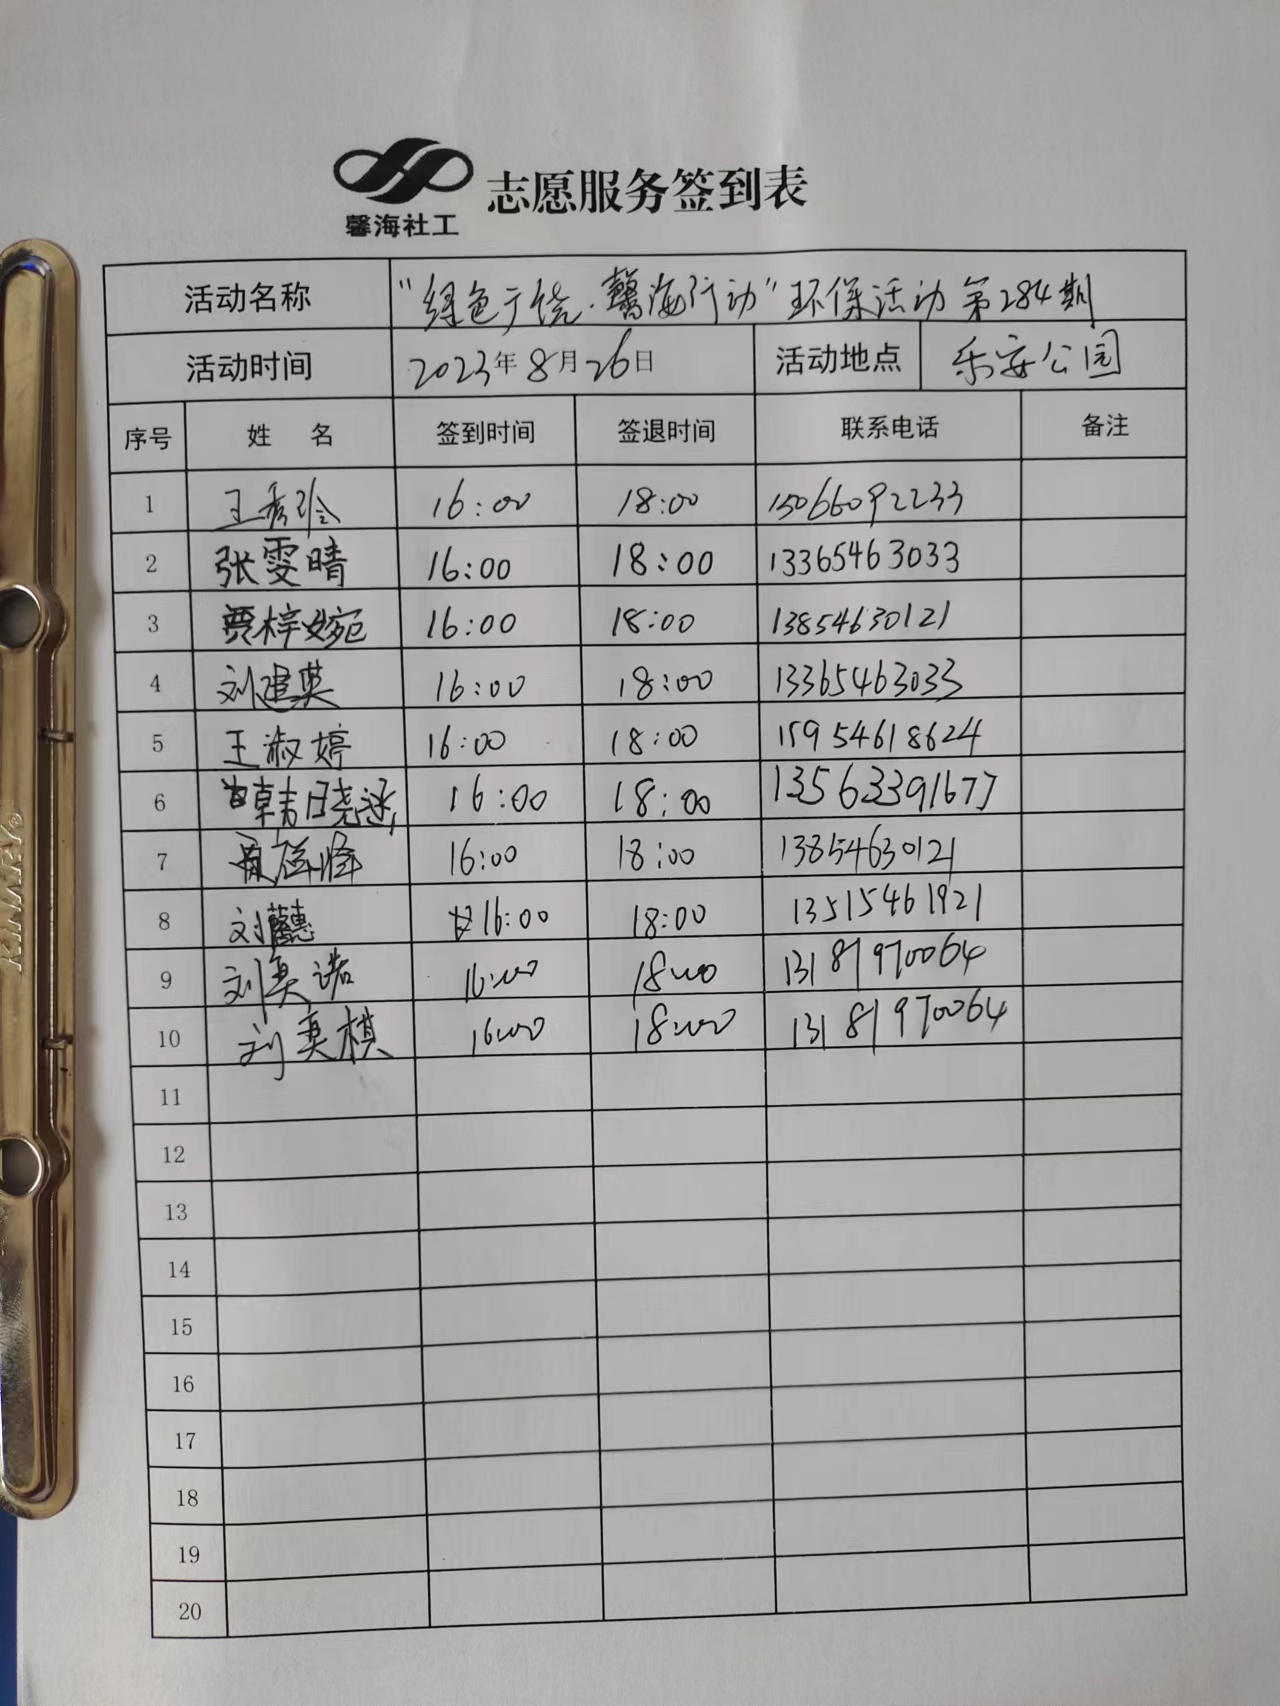 馨海社工
志愿服务签到表
活动名称 "绿色广饶·馨海行动"环保活动第284期
活动时间 2023年8月26日 活动地点 乐安公园
序号 姓 名 签到时间 签退时间 联系电话 备注
1 王秀玲 16:00 18:00 15066092233
2 张雯晴 16:00 18:00 13365463033
3 贾梓婉 16:00 18:00 13854630121
4 刘建英 16:00 18:00 13365463033
5 王淑婷 16:00 18:00 15954618624
6 韩晓涵 16:00 18:00 13563391677
7 16:00 18:00 13854630121
8 刘 16:00 18:00 13515461921
9 刘奕诺 16:00 18:00 13181970064
10 刘奕棋 16:00 18:00 13181970064
11
12
13
14
15
16
17
18
19
20